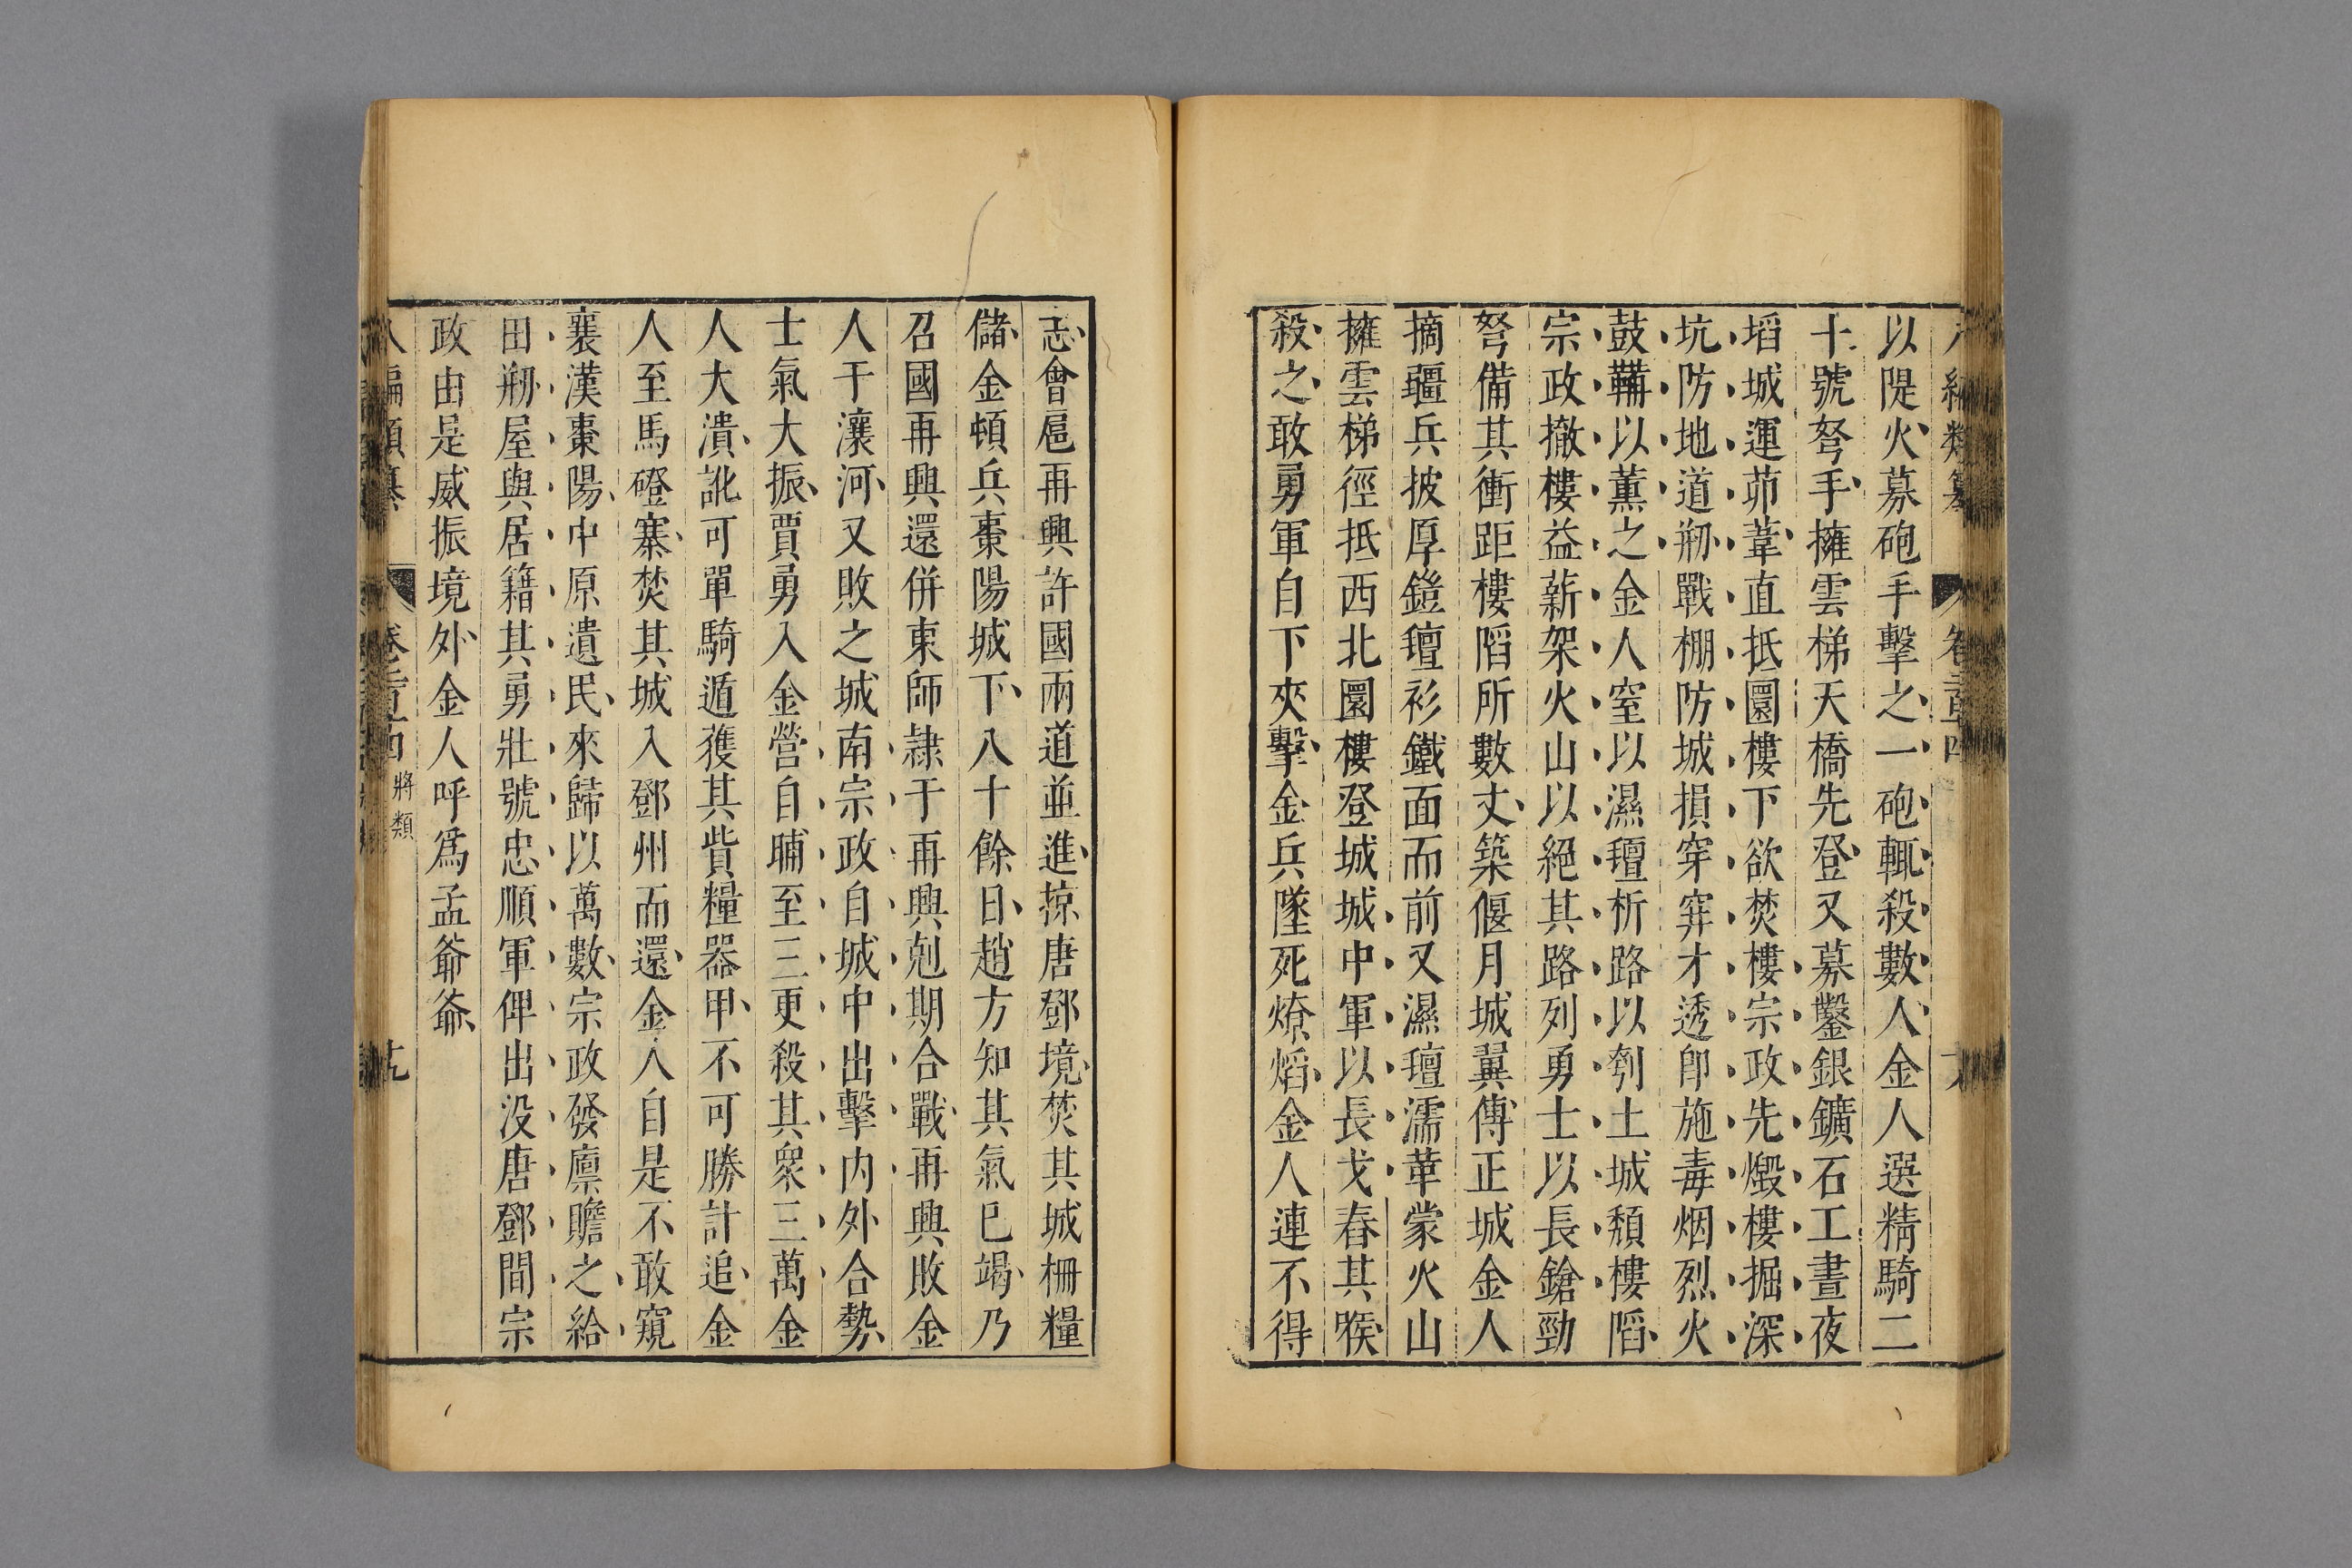 以隄火募砲手擊之一砲輒殺數人金人選精騎二
十號弩手擁雲梯天橋先登又募鑿銀鑛石工晝夜
塪城運茆葦直抵圜樓下欲焚樓宗政先燬樓掘深
坑防地道刱戰棚防城損穿穽才透卽施毒烟烈火
鼓鞴以薰之金人窒以濕氊析路以刳土城頹樓陷
宗政撤樓益薪架火山以絕其路列勇士以長鎗勁
弩備其衝距樓陷所數丈築偃月城翼傅正城金人
摘疆兵披厚鎧氊衫鐵面而前又濕氊濡革蒙火山
擁雲梯徑抵西北圜樓登城城中軍以長戈舂其喉
殺之敢勇軍自下夾擊金兵墜死燎焰金人連不得
志會扈再興許國兩道並進掠唐鄧境焚其城柵糧
儲金頓兵棗陽城下八十餘日趙方知其氣已竭乃
召國再興還併東師隷于再興剋期合戰再興敗金
人于瀼河又敗之城南宗政自城中出擊內外合勢
士氣大振賈勇入金營自晡至三更殺其衆三萬金
人大潰訛可單騎遁獲其貲糧器甲不可勝計追金
人至馬磴寨焚其城入鄧州而還金人自是不敢窺
襄漢棗陽中原遺民來歸以萬數宗政發廩贍之給
田刱屋與居籍其勇壯號忠順軍俾出没唐鄧間宗
政由是威振境外金人呼爲孟爺爺
將類